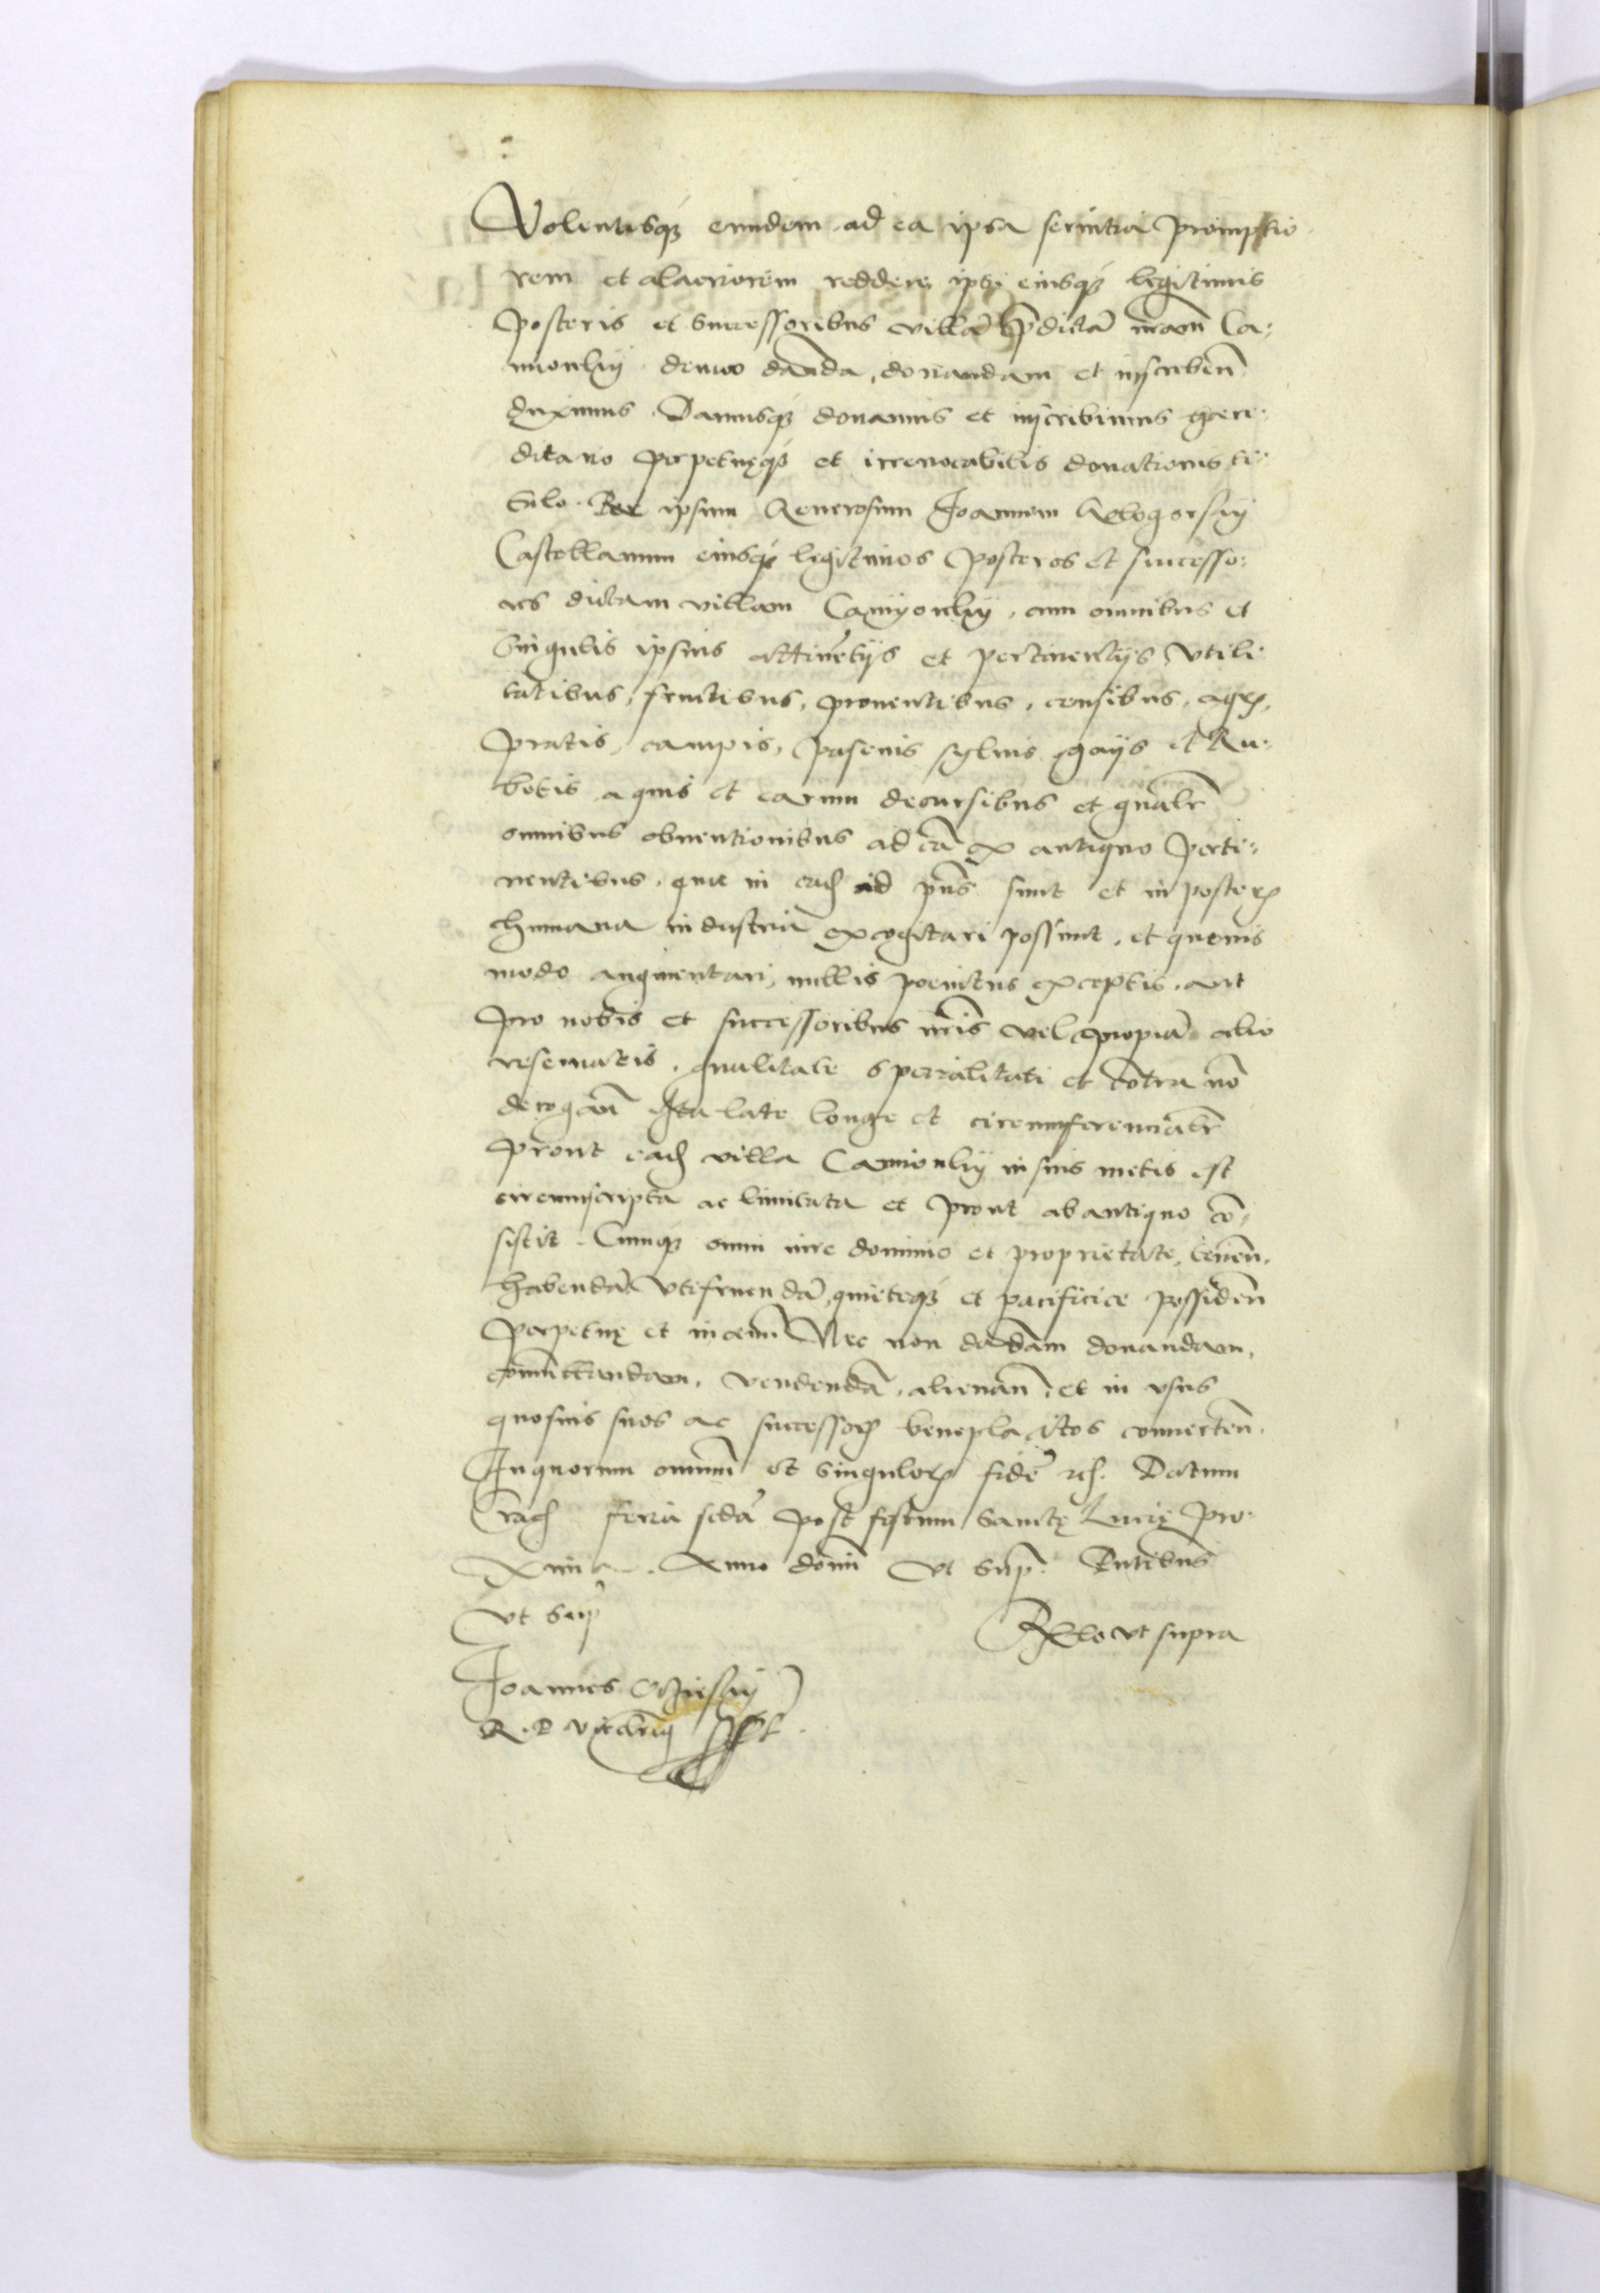 Volentesq̃ eundem ad ea ipsa servitia promptio
rem et alacriorem reddere, ipsi eiusq̃ legitimis
posteris et successoribus villã p̃dictã nr̃am Ca:
mionky denuo dandã, donandam et inscribeñ
duximus. Damusq̃ donamus et inscribimus haere:
ditario perpetuęq̃ et irrevocabilis donationis ti:
tulo. ipsum Generosum Joannem
Castellanum eiusq̃ legitimos posteros et successo:
res dictam villam Camyonky, cum omnibus et
singulis ipsius attinẽtijs et pertinentijs utili
tatibus, fructibus, proventibus, censibus, agr̃,
pratis, campis, pascuis sylvis gaijs et Ru:
betis aquis et earum decursibus et gñalr̃
omnibus obventionibus ad eã ex antiquo perti:
nentibus. que in ead ad pñs sunt et in poster̃
humana industria excogitari possunt, et quovis
modo augmentari, nullis poenitus exceptis. aut
pro nobis et successoribus nr̃is vel alio
reservatis, qualitate specialitati et cõtra nõ
derogañ Ita late longe et circumferencialr̃
prout ead villa Camionky in suis metis est
circumscripta ac limitata et prout ab antiquo cõ-
sistit. Cumq̃ omni iure dominio et proprietate, teneñ.
habendã utifruendã, quieteq̃ et pacifice possideñ
perpetuę et in aevũ Nec non dandam donandam,
com̃utandam, vendendã, alienañ, et in usus
quosvis suos ac successor̃ beneplacitos converteñ.
In quorum omniũ et singulor̃ fidẽ rei. Datum
Crac̃ feria scdã post festum sanctę Lucię pro:
xima. Anno domĩ ut sup̃. Pñtibus
ut sup̃
Rlo ut supra
Joannes Oczieski
R. P. Vicecancell̃ sspt.